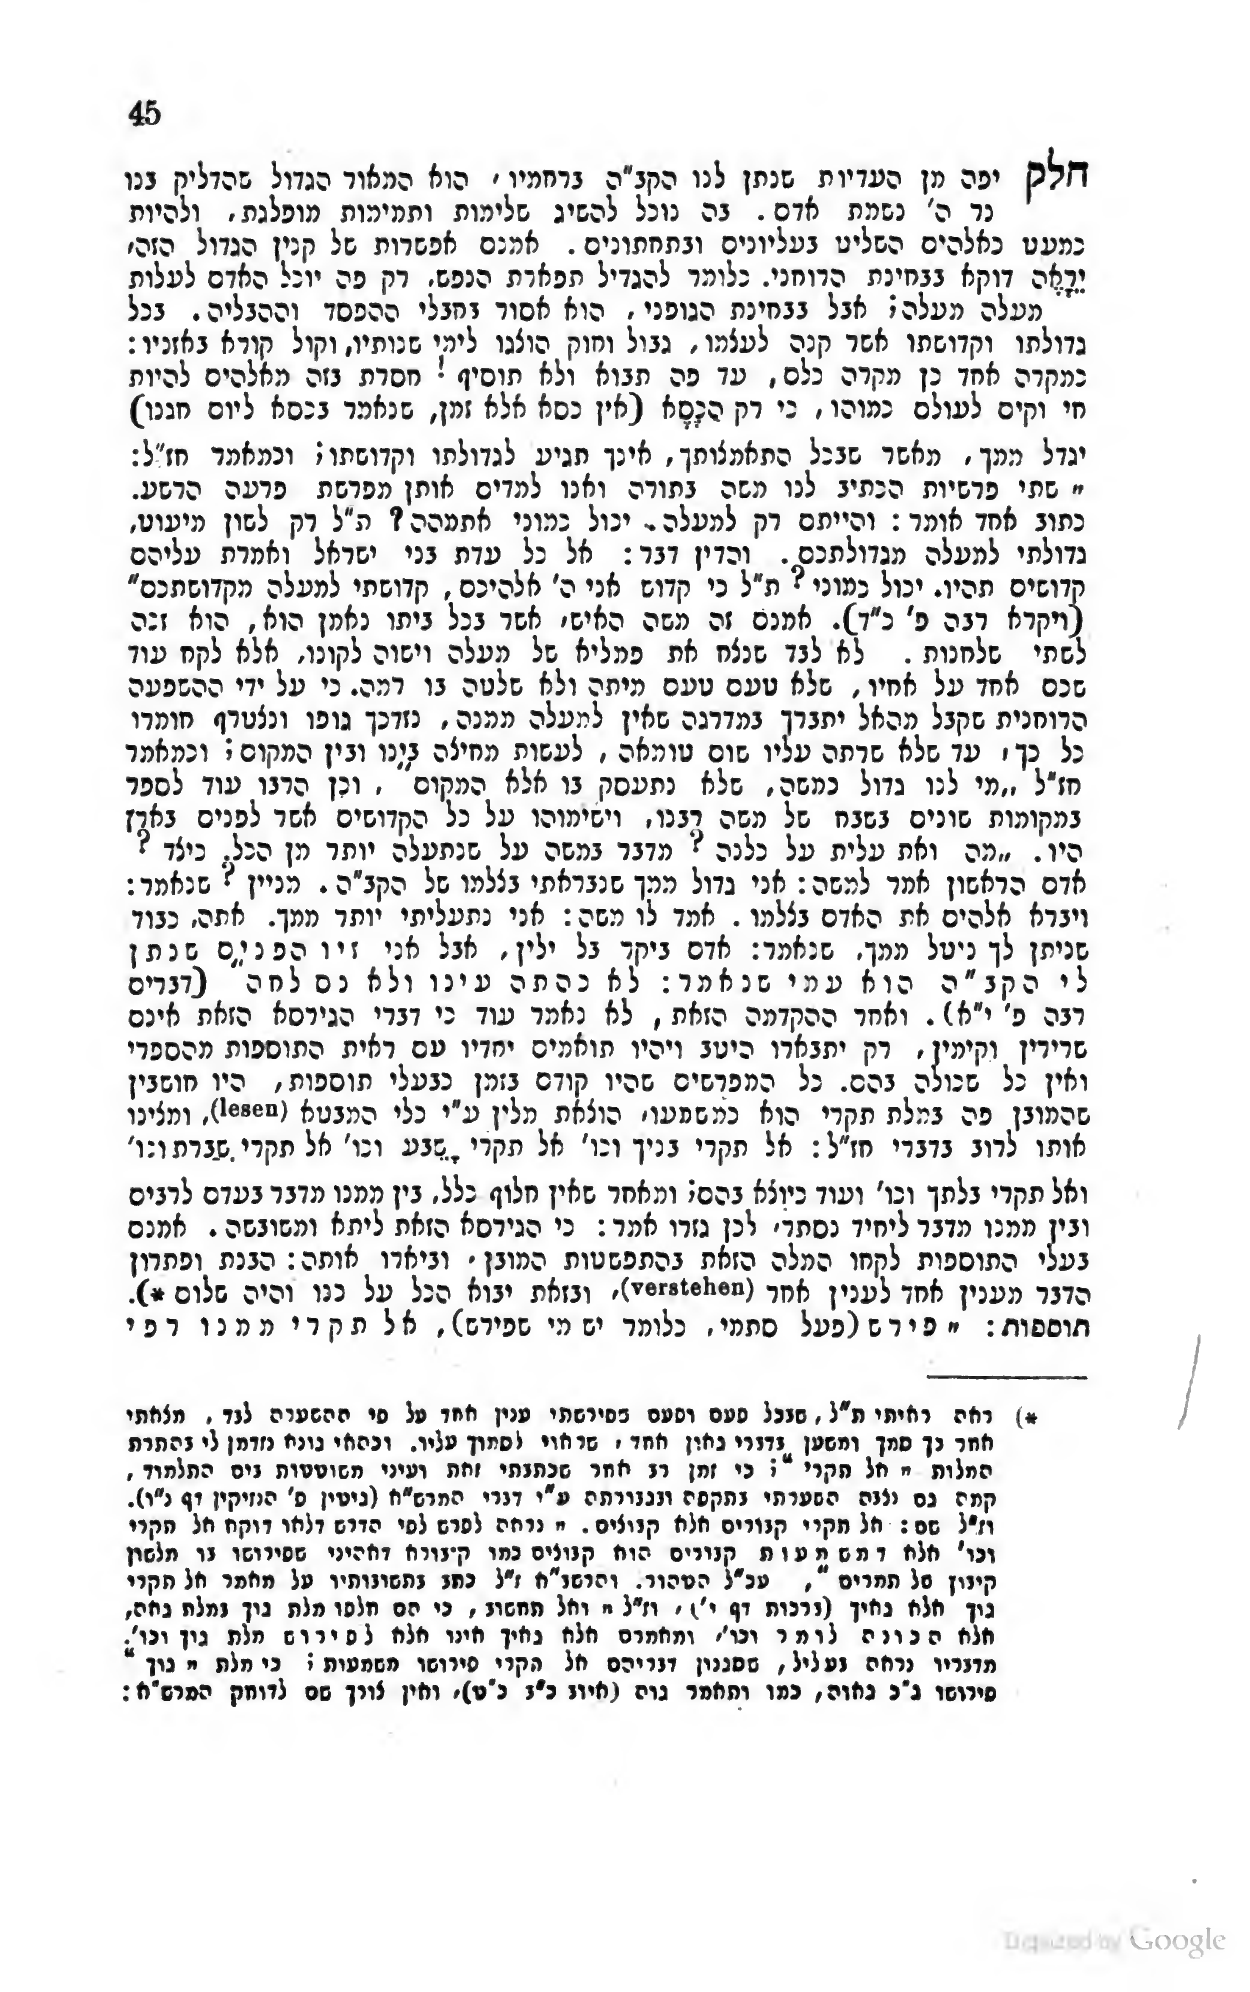 45
חלק יפה מן העדיות שנתן לנו הקב"ה ברחמיו, הוא המאור הגדול שהדליק בנו
נר ה' נשמת אדם. בה נוכל להשיג שלימות ותמימות מופלגת, ולהיות
כמעט כאלהים השליט בעליונים ובתחתונים. אמנם אפשרות של קנין הגדול הזה,
יֵרָאֶה דוקא בבחינת הרוחני. כלומר להגדיל תפארת הנפש, רק פה יוכל האדם לעלות
מעלה מעלה; אבל בבחינת הגופני, הוא אסור בחבלי ההפסד וההבליה. בכל
גדולתו וקדושתו אשר קנה לעצמו, גבול וחוק הוצגו לימי שנותיו, וקול קורא באזניו:
כמקרה אחד כן מקרה כלם, עד פה תבוא ולא תוסיף! חסרת בזה מאלהים להיות
חי וקים לעולם כמוהו, כי רק הַכִּסֵא (אין כסא אלא זמן, שנאמר בכסא ליום חגנו)
יגדל ממך, מאשר שבכל התאמצותך, אינך תגיע לגדולתו וקדושתו; וכמאמר חז"ל:
" שתי פרשיות הכתיב לנו משה בתורה ואנו למדים אותן מפרשת פרעה הרשע.
כתוב אחד אומר: והייתם רק למעלה. יכול כמוני אתמהה? ת"ל רק לשון מיעוט,
גדולתי למעלה מגדולתכם. והדין דבר: אל כל עדת בני ישראל ואמרת עליהם
קדושים תהיו. יכול כמוני? ת"ל כי קדוש אני ה' אלהיכם, קדושתי למעלה מקדושתכם"
(ויקרא רבה פ' כ"ד). אמנם זה משה האיש, אשר בכל ביתו נאמן הוא, הוא זכה
לשתי שלחנות. לא לבד שנצח את פמליא של מעלה וישוה לקונו, אלא לקח עוד
שכם אחד על אחיו, שלא טעם טעם מיתה ולא שלטה בו רמה. כי על ידי ההשפעה
הרוחנית שקבל מהאל יתברך במדרגה שאין למעלה ממנה, נזדכך גופו ונצטרף חומרו
כל כך, עד שלא שרתה עליו שום טומאה, לעשות מחיצה בינו ובין המקום; וכמאמר
חז"ל „מי לנו גדול כמשה, שלא נתעסק בו אלא המקום", וכן הרבו עוד לספר
במקומות שונים בשבח של משה רבנו, וישימוהו על כל הקדושים אשר לפנים בארץ
היו. „מה ואת עלית על כלנה? מדבר במשה על שנתעלה יותר מן הכל. כיצד?
אדם הראשון אמר למשה: אני גדול ממך שנבראתי בצלמו של הקב"ה. מניין? שנאמר:
ויברא אלהים את האדם בצלמו. אמר לו משה: אני נתעליתי יותר ממך. אתה, כבוד
שניתן לך ניטל ממך, שנאמר: אדם ביקר בל ילין, אבל אני זיו הפנים שנתן
לי הקב"ה הוא עמי שנאמר: לא כהתה עינו ולא נס לחה" (דברים
רבה פ' י"א). ואחר ההקדמה הזאת, לא נאמר עוד כי דברי הגירסא הזאת אינם
שרירין וקימין, רק יתבארו היטב ויהיו תואמים יחדיו עם ראית התוספות מהספרי
ואין כל שכולה בהם. כל המפרשים שהיו קודם בזמן לבעלי תוספות, היו חושבין
שהמובן פה במלת תקרי הוא כמשמעו, הוצאת מלין ע"י כלי המבטא (lesen), ומצינו
אותו לרוב בדברי חז"ל: אל תקרי בניך וכו' אל תקרי שבע וכו' אל תקרי שברת וכו'
ואל תקרי בלתך וכו' ועוד כיוצא בהם; ומאחר שאין חלוף כלל, בין ממנו מדבר בעדם לרבים
ובין ממנו מדבר ליחיד נסתר, לכן גזרו אמר: כי הגירסא הזאת ליתא ומשובשה. אמנם
בעלי התוספות לקחו המלה הזאת בהתפשטות המובן, וביארו אותה: הבנת ופתרון
הדבר מענין אחד לענין אחר (verstehen), ובזאת יבוא הכל על כנו והיה שלום *).
תוספות: " פירש (פעל סתמי, כלומר יש מי שפירש), אל תקרי ממנו רפי
*) ראה ראיתי ת"ל, שבכל פעם ופעם בפירשתי ענין אחד על פי ההשערה לבד, מצאתי
אחר כך סמך ומשען בדברי גאון אחד, שראוי לסמוך עליו. וכהאי גונא נזדמן לי בהתרת
המלות " אל תקרי "; כי זמן רב אחר שכתבתי זאת ועיני משוטטות בים התלמוד,
קמה גם נצבה השערתי בתקפה ובגבורתה ע"י דברי המהרש"א (גיטין פ' הנזיקין דף נ"ו).
וז"ל שם: אל תקרי קבורים אלא קבוצים. " נראה לפרש לפי הדרש דלאו דוקא אל תקרי
וכו' אלא דמשמעות קבורים הוא קבוצים כמו קיבורא דאהיני שפירושו בו תלשון
קיבוץ של תמרים ", עכ"ל הטהור. והרשב"א ז"ל כתב בתשובותיו על מאמר אל תקרי
בניך אלא באיך (ברכות דף י'), וז"ל " ואל תחשוב, כי הם חלפו מלת גוך במלת גאה,
אלא הכונה לומר וכו', ומאמרם אלא גאיך אינו אלא לפירוש מלת גוך וכו'.
מדבריו נראה בעליל, שסגנון דבריהם אל תקרי פירושו משמעות; כי מלת " גוך "
פירושו ג"כ גאוה, כמו ותאמר גוה (איוב כ"ב כ"ט), ואין צורך שם לדוחק המהרש"א: